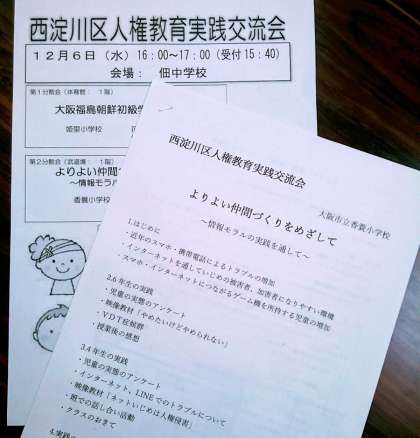 西淀川区人権教育実践交流会
12月6日（水）16：00～17：00（受付15：40）
会場： 佃中学校
第1分散会（体育館： 1階）
大阪福島朝鮮初級学
姫里小学校
第2分散会（武道場： 1階）
よりよい仲間づ
～情報モラル
香簑小学校
西淀川区人権教育実践交流会
大阪市立香簑小学校
よりよい仲間づくりをめざして
～情報モラルの実践を通して～
1.はじめに
・近年のスマホ・携帯電話によるトラブルの増加
・インターネットを通していじめの被害者、加害者になりやすい環境
・スマホ・インターネットにつながるゲーム機を所持する児童の増加
2.6年生の実践
・児童の実態のアンケート
・映像教材「やめたいけどやめられない」
・VDT症候群
・授業後の感想
3.4年生の実践
・児童の実態のアンケート
・インターネット、LINEでのトラブルについて
・映像教材「ネットいじめは人権侵害」
・班での話し合い活動
・クラスのおきて
4.実践の